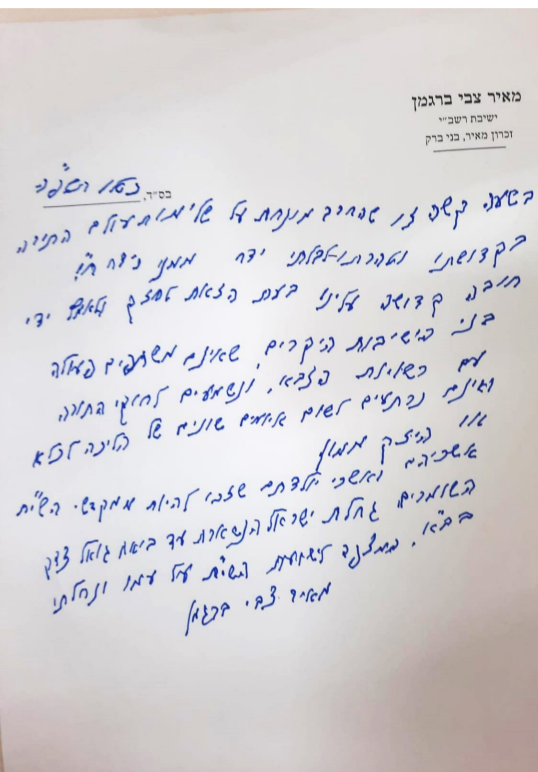 מאיר צבי ברגמן
ישיבת רשב"י
זכרון מאיר, בני ברק
בס"ד,
בשעה קשה זו שהחרב מונחת על שלימות עולם התורה
בקדושתו וטהרתו לבלתי ידח ממנו נידח ח"ו.
חובה קדושה עלינו בעת הזאת לחזק ולאמץ ידי
בני הישיבות היקרים, שאינם משתפים פעולה
עם רשויות הצבא, ונשמעים לחוקי התורה
ואינם נרתעים לשום איומים שונים של הליכה לכלא
או היזק ממון
אשריהם ואשרי יולדתם שזכו להיות ממקדשי השי"ת
השומרים גחלת ישראל הנשארת עד ביאת גואל צדק
בב"א. המצפה לישועת השי"ת על עמו ונחלתו
מאיר צבי ברגמן